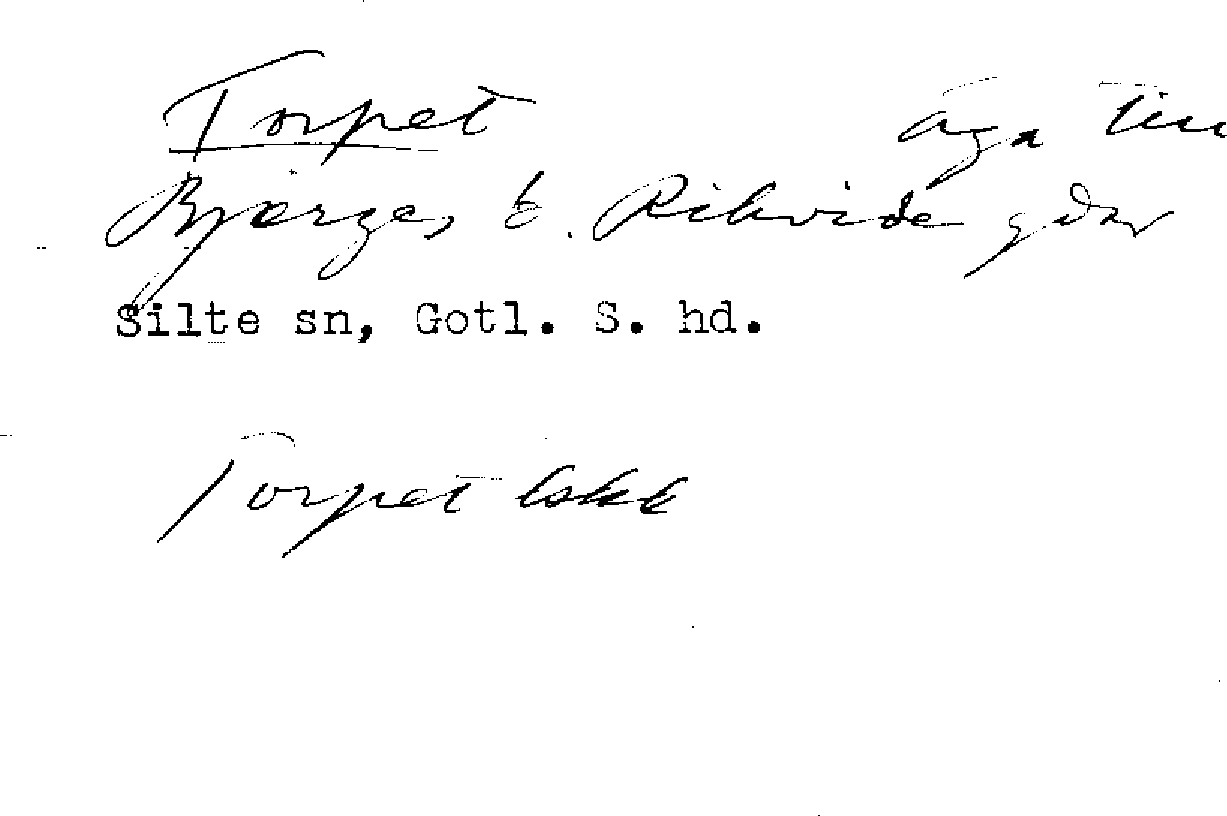 Torpet äga till
Bjerges, t. Rikvide gdar
Silte sn, Gotl. S. hd.
Torpet